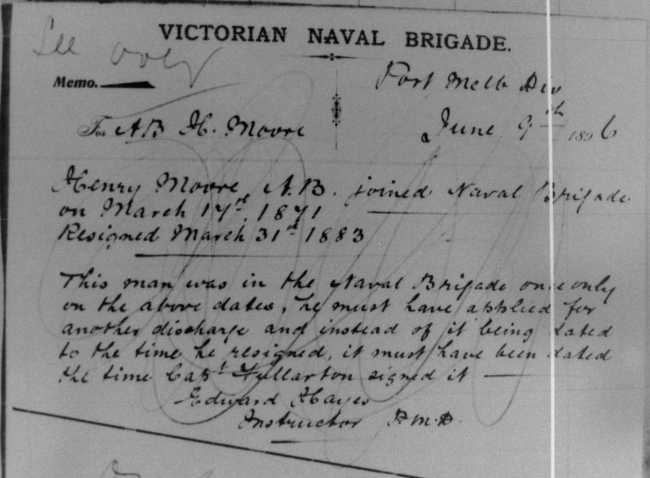 See over
VICTORIAN NAVAL BRIGADE.
Memo.
Port Melb Div
To AB H. Moore
June 9th 1896
Henry Moore, A.B. joined Naval Brigade
on March 17th, 1871
Resigned March 31st 1883
This man was in the Naval Brigade once only
on the above dates, he must have applied for
another discharge and instead of it being dated
to the time he resigned, it must have been dated
the time Capt Fullarton signed it —
Edward Hayes
Instructor P.M.D.